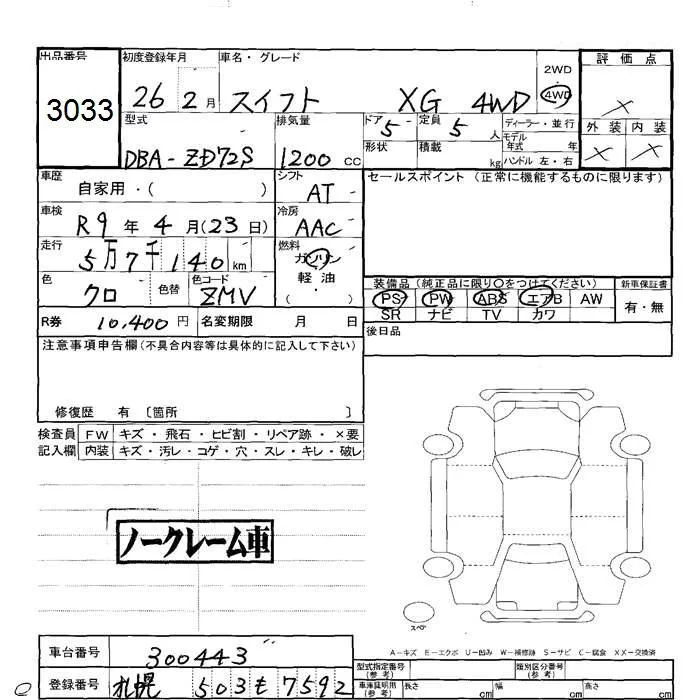 出品番号
3033
初度登録年月
26 2月
車名・グレード
スイフト XG 4WD
2WD
4WD
評価点
×
外装 内装
× ×
型式
DBA-ZD72S
排気量
1200 cc
ドア 5
定員 5 人
形状
積載 kg
ディーラー・並行
モデル年式 年
ハンドル 左・右
車歴
自家用・( )
シフト
AT
セールスポイント(正常に機能するものに限ります)
車検
R9年4月(23日)
冷房
AAC
走行
5万7千140km
燃料
ガソリン
軽油
( )
色
クロ
色替
色コード
ZMV
装備品(純正品に限り○をつけてください)
PS PW ABS エアB AW
SR ナビ TV カワ
新車保証書
有・無
R券 10,400円
名変期限 月 日
後日品
注意事項申告欄(不具合内容等は具体的に記入して下さい)
修復歴 有〔箇所 〕
検査員記入欄
FW キズ・飛石・ヒビ割・リペア跡・×要
内装 キズ・汚レ・コゲ・穴・スレ・キレ・破レ
ノークレーム車
スペア
A-キズ E-エクボ U-凹み W-補修跡 S-サビ C-腐食 XX-交換済
車台番号
300443
登録番号
札幌 503 も 7592
型式指定番号(参考)
類別区分番号(参考)
車庫証明用(参考)
長さ cm
幅 cm
高さ cm